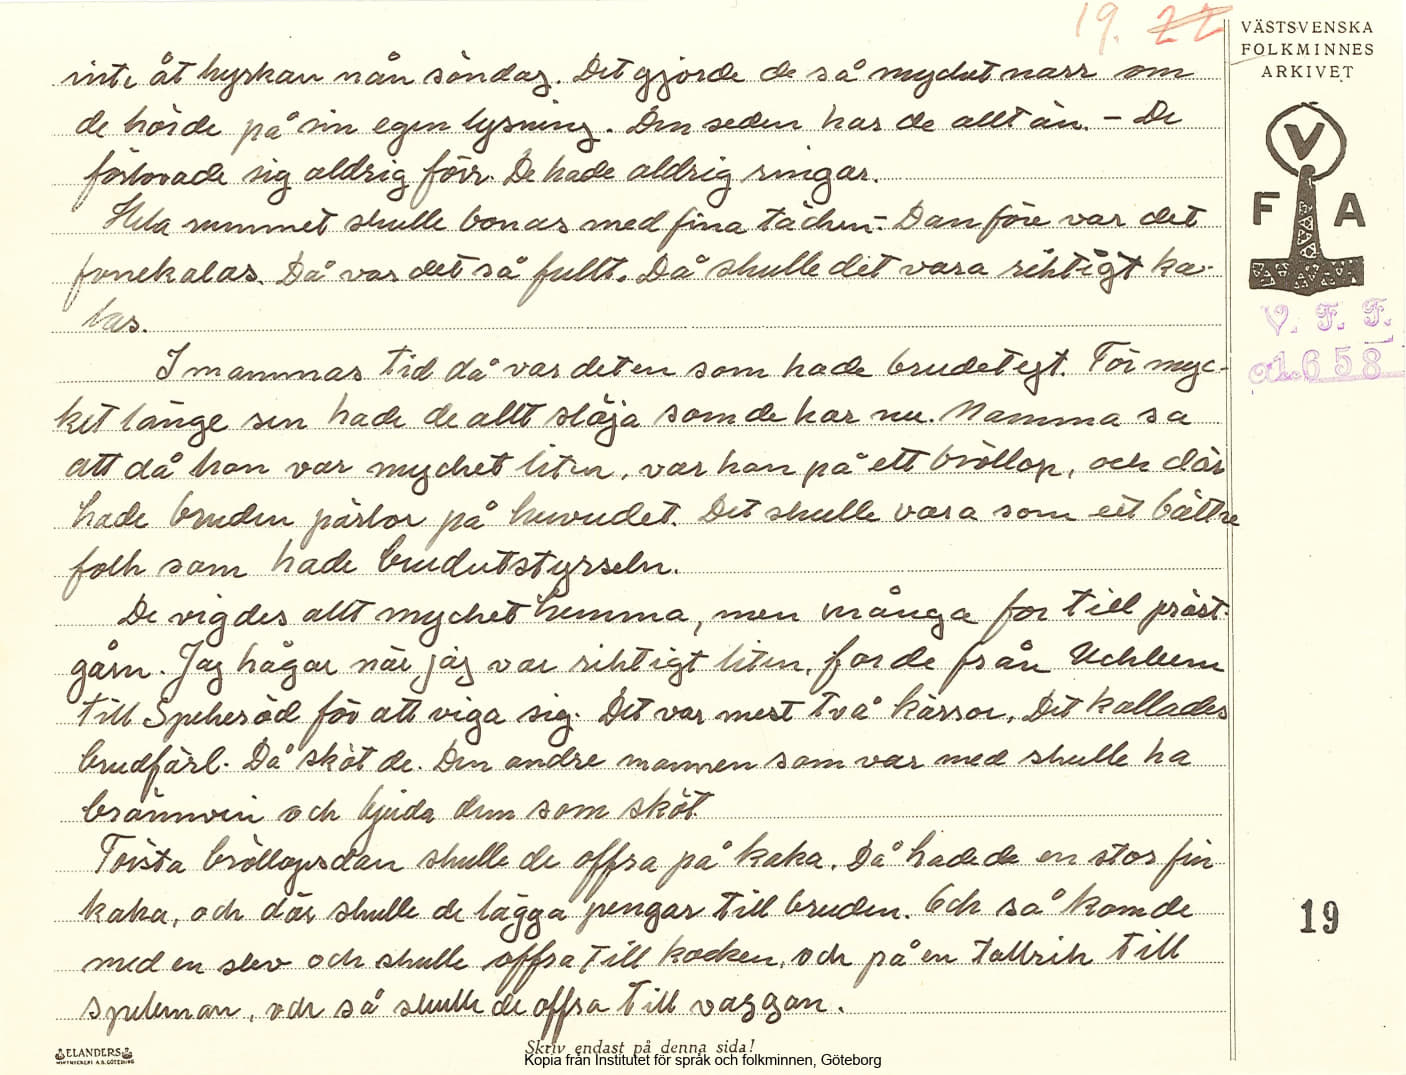 19. 22
VÄSTSVENSKA
FOLKMINNES
ARKIVET
V
F A
V. F. F.
1658
inte åt kyrkan nån söndag. Det gjorde de så mycket narr om
de hörde på sin egen lysning. Den seden har de allt än. - De
förlovade sig aldrig förr. De hade aldrig ringar.
Hela rummet skulle bonas med fina täcken. - Dan före var det
fonekalas. Då var det så fullt. Då skulle det vara riktigt ka-
las.
I mammas tid då var det en som hade brudetygt. För myc-
ket länge sen hade de allt slöja som de har nu. Mamma sa
att då hon var mycket liten, var hon på ett bröllop, och där
hade bruden pärlor på huvudet. Det skulle vara som ett bättre
folk som hade brudutstyrseln.
De vigdes allt mycket hemma, men många for till präst-
gårn. Jag hågar när jag var riktigt liten, for de från Uchlum
till Spekeröd för att viga sig. Det var mest två kärror. Det kallades
brudfärl. Då sköt de. Den andre mannen som var med skulle ha
brännvin och bjuda dem som sköt.
Första bröllopsdan skulle de offra på kaka. Då hade de en stor fin
kaka, och där skulle de lägga pengar till bruden. Och så kom de
med en slev och skulle offra till kocken, och på en tallrik till
speleman, och så skulle de offra till vaggan.
19
ELANDERS
Skriv endast på denna sida!
Kopia från Institutet för språk och folkminnen, Göteborg